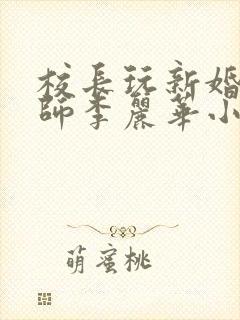 校長玩新婚
師李麗華小
萌蜜桃